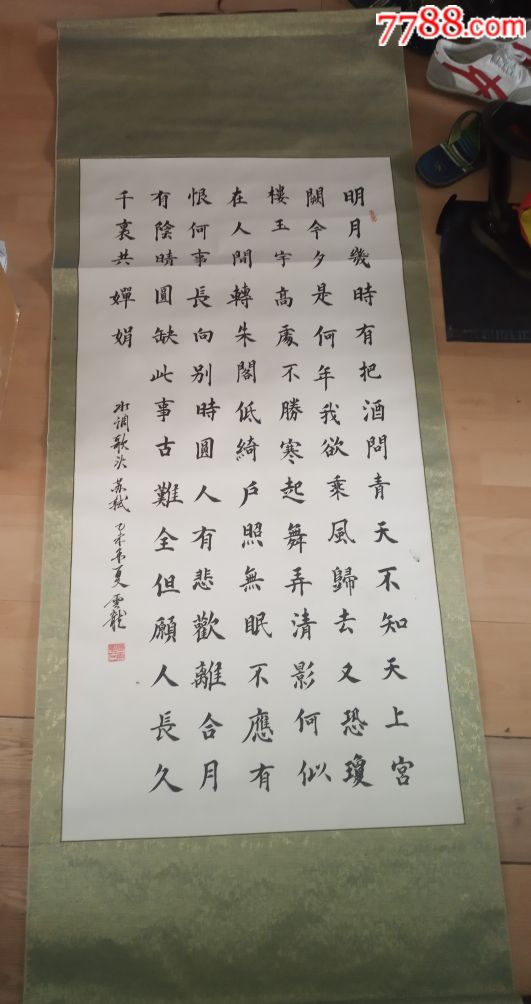 7788.com
明月幾時有把酒問青天不知天上宮
闕今夕是何年我欲乘風歸去又恐瓊
樓玉宇高處不勝寒起舞弄清影何似
在人間轉朱閣低綺戶照無眠不應有
恨何事長向別時圓人有悲歡離合月
有陰晴圓缺此事古難全但願人長久
千裏共嬋娟
水调歌头 苏轼 乙未年夏 雲龍